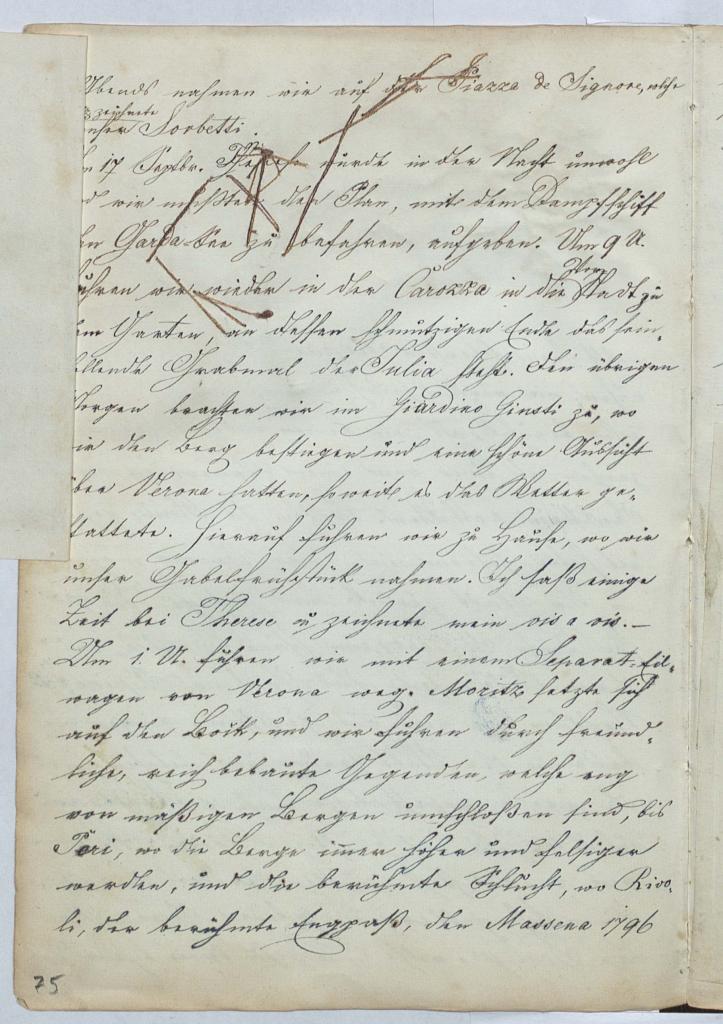 Abends nahmen wir auf der Piazza de Signore, welche
zeichnete
unser Sorbetti.
n 17 Septbr. Therese wurde in der Nacht unwohl
d wir mußten den Plan, mit dem Dampfschiff
en Garda See zu befahren, aufgeben. Um 9 U.
uhren wir wieder in der Carozza in die Vorstadt zu
em Garten, an dessen schmutzigen Ende das sein-
ollende Grabmal der Julia steht. Den übrigen
Morgen brachten wir im Giardino Giusti zu, wo
ir den Berg bestiegen und eine schöne Aussicht
über Verona hatten, soweit es das Wetter ge-
stattete. Hierauf fuhren wir zu Hause, wo wir
unser Gabelfrühstück nahmen. Ich saß einige
Zeit bei Therese u zeichnete mein vis a vis. –
Um 1. U. fuhren wir mit einem Separat-Eil-
wagen von Verona weg. Moritz setzte sich
auf den Bock, und wir fuhren durch freund-
liche, reich bebaute Gegenden, welche eng
von mäßigen Bergen umschloßen sind, bis
Peri, wo die Berge immer höher und felsiger
werden, und die berühmte Schlucht, wo Rivo-
li, der berühmte Engpaß, den Massena 1796
75